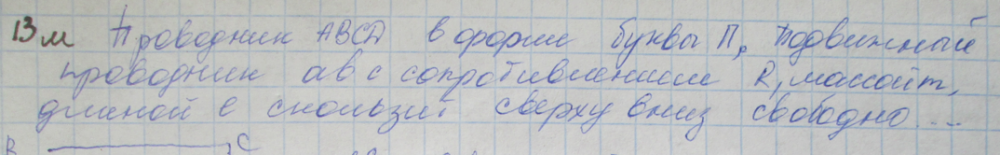 13м Проводник ABCД в форме буквы П, подвижный
проводник ав с сопротивлением R, массой m,
длиной l скользит сверху вниз свободно...
B C